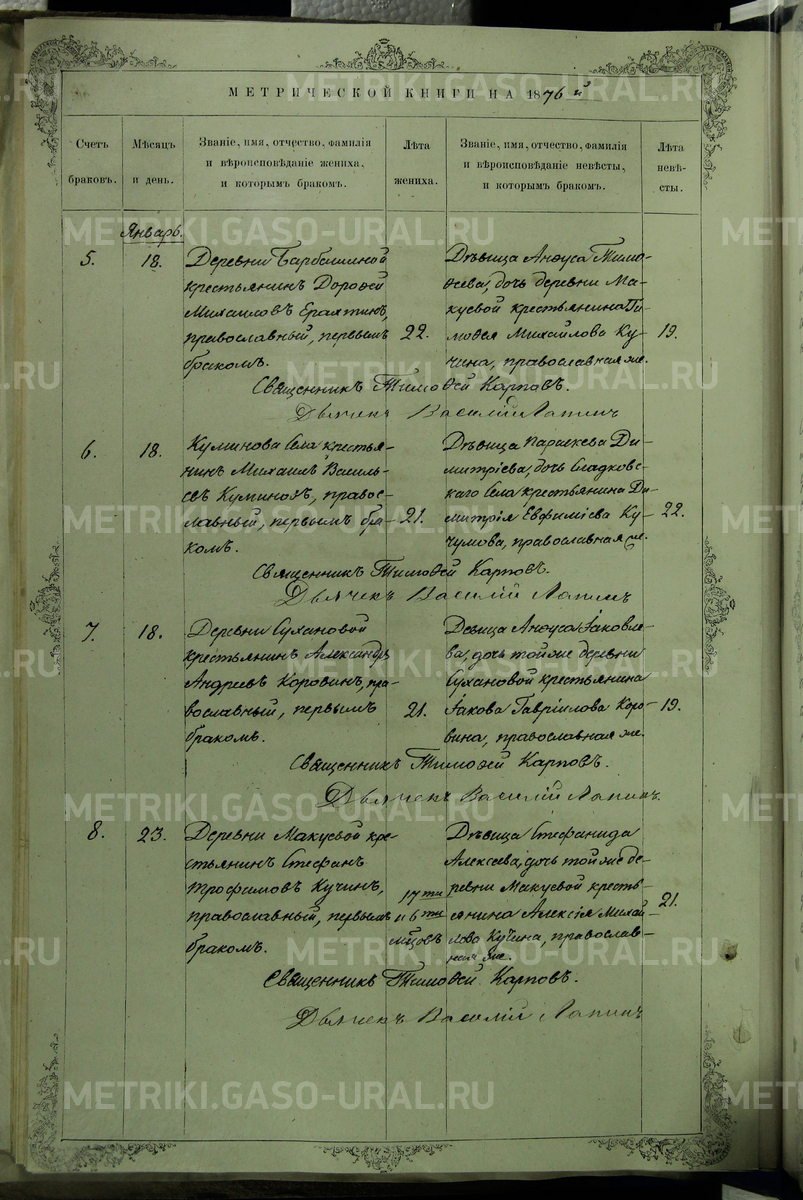 МЕТРИЧЕСКОЙ КНИГИ НА 1876 й
Счетъ браковъ.
Мѣсяцъ и день.
Званіе, имя, отчество, фамилія и вѣроисповѣданіе жениха, и которымъ бракомъ.
Лѣта жениха.
Званіе, имя, отчество, фамилія и вѣроисповѣданіе невѣсты, и которымъ бракомъ.
Лѣта невѣсты.
Январь.
5.
18.
Деревни
крестьянинъ Дорофей
Михаиловъ
православный, первымъ
бракомъ.
22.
Дѣвица Анфуса Тимо-
феева, дочь деревни Ма-
куевой крестьянина Ти-
мофея Михайлова Ку-
чина, православная же.
19.
Священникъ Тимофей Карповъ.
Дьячекъ Василій Лапинъ
6.
18.
Куминова Села крестья-
нинъ Михаилъ Василь-
евъ Куминовъ, право-
славный, первымъ бра-
комъ.
21.
Дѣвица Параскева Ди-
митріева, дочь Сладковс-
каго Села крестьянина Ди-
митрія Евфиміева Ку-
чумова, православная же.
22.
Священникъ Тимофей Карповъ.
Дьячекъ Василій Лапинъ
7.
18.
Деревни Сухановой
крестьянинъ Александръ
Андреевъ Коровинъ, пра-
вославный, первымъ
бракомъ.
21.
Девица Анфуса Іаковле-
ва, дочь той же деревни
Сухановой крестьянина
Іакова Гавріилова Коро-
вина, православная же.
19.
Священникъ Тимофей Карповъ.
Дьячекъ Василій Лапинъ.
8.
23.
Деревни Макуевой кре-
стьянинъ Стефанъ
Трофимовъ Кучинъ,
православный, первымъ
бракомъ.
17 ти
и 6 ти
мѣсцовъ
Дѣвица Стефанида
Алексеева, дочь той же де-
ревни Макуевой кресть-
янина Алексія Михай-
лова Кучина, православ-
ная же.
21.
Священникъ Тимофей Карповъ.
Дьячекъ Василій Лапинъ
METRIKI.GASO-URAL.RU